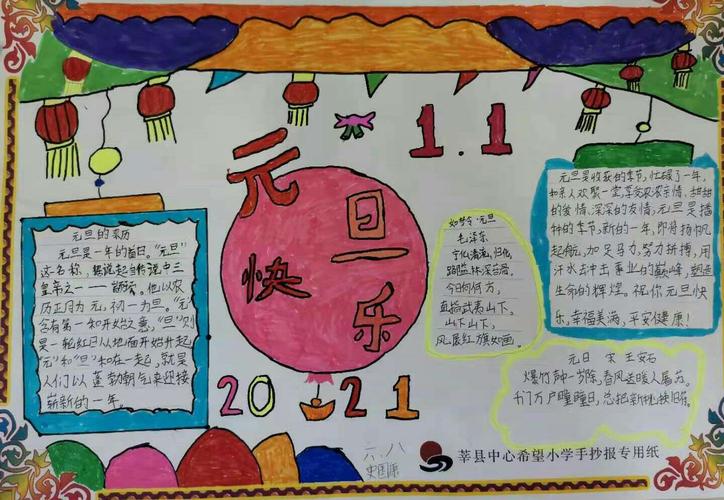 1.1
元旦
快乐
2021
元旦的来历
元旦是一年的首日。"元旦"
这一名称,据说起自传说中三
皇帝之一——颛顼。他以农
历正月为元,初一为旦。"元"
含有第一和开始之意,"旦"则
是一轮红日从地面开始升起,
"元"和"旦"和在一起,就是
人们以蓬勃朝气来迎接
崭新的一年。
如梦令·元旦
毛泽东
宁化、清流、归化,
路隘林深苔滑。
今日向何方,
直指武夷山下。
山下山下,
风展红旗如画。
元旦是收获的季节,忙碌了一年,
和亲人欢聚一堂,享受浓浓亲情,甜甜
的爱情,深深的友情,元旦是播
种的季节,新的一年,即将扬帆
起航,加足马力,努力拼搏,用
汗水去冲击事业的巅峰,塑造
生命的辉煌。祝你元旦快
乐,幸福美满,平安健康!
元日 宋 王安石
爆竹声中一岁除,春风送暖入屠苏。
千门万户曈曈日,总把新桃换旧符。
六.八
史国原
莘县中心希望小学手抄报专用纸